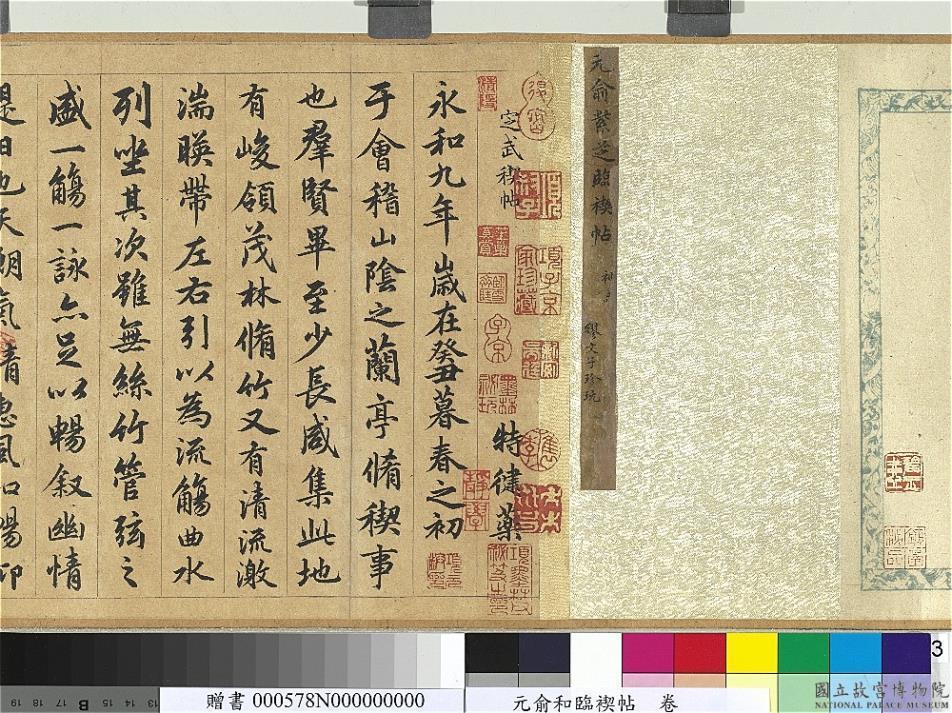 元俞紫芝臨禊帖
繆文子珍玩
定武禊帖
特健藥
永和九年歲在癸丑暮春之初
于會稽山陰之蘭亭脩稧事
也羣賢畢至少長咸集此地
有峻領茂林脩竹又有清流激
湍暎帶左右引以為流觴曲水
列坐其次雖無絲竹管弦之
盛一觴一詠亦足以暢叙幽情
是日也天朗氣清惠風和暢仰
項子京家珍藏
子京
贈書 000578N000000000
元俞和臨禊帖 卷
3
國立故宮博物院
NATIONAL PALACE MUSEUM
19 18 17 B 15 14 13